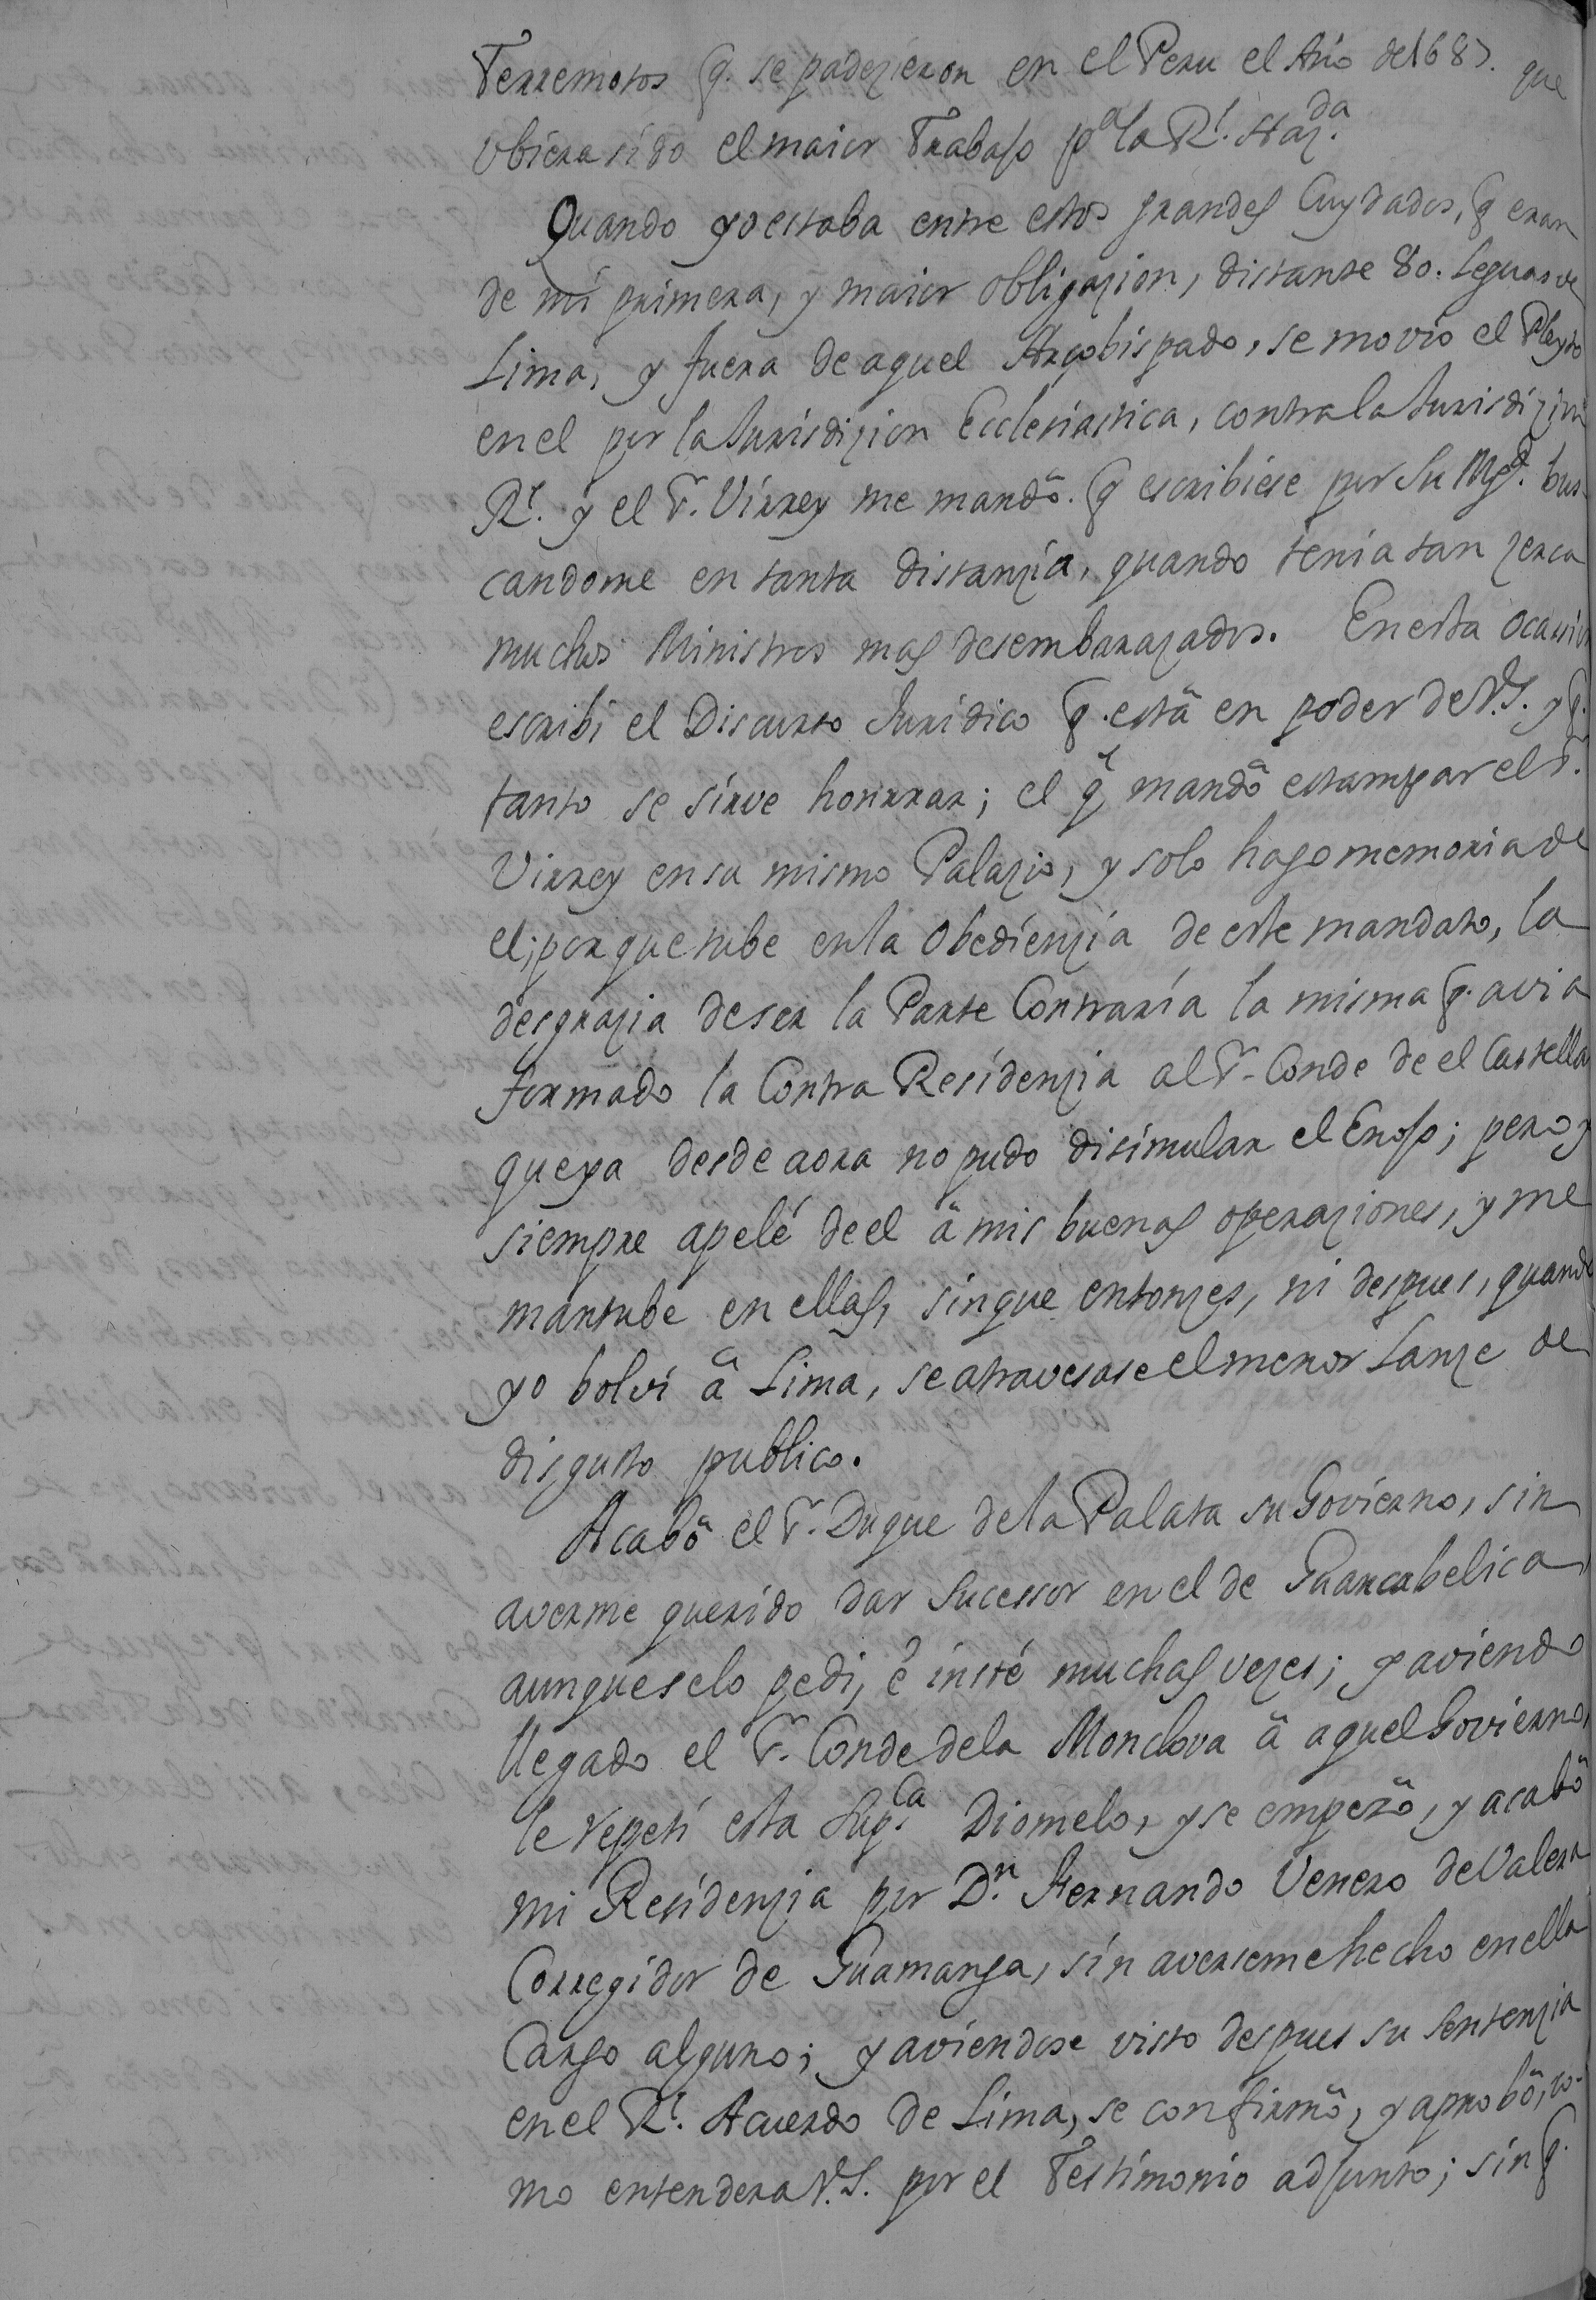 Terremotos q. se padezieron en el Peru el Año de 1687. que
vbiera sido el maior Trabajo pa. la Rl. Hazda.
Quando yo estaba entre estos grandes Cuydados, q eran
de mi primera, y maior obligazion, distante 80. Leguas de
Lima, y fuera de aquel Arçobispado, se movio el Pleyto
en el por la Jurisdizion Ecclesiastica, contra la Jurisdizion
Rl. y el Sr. Virrey me mandò. q escribiese por Su Mgd. bus
candome en tanta distanzia, quando tenia tan zerca
muchos Ministros mas desembarazados. En esta ocasion
escribi el Discurso Juridico q. està en poder de V.S. y q.
tanto se sirve honrrar; el ql mandò estampar el Sr.
Virrey en su mismo Palazio, y solo hago memoria de
el; porque tube en la Obedienzia de este mandato, la
desgrazia de ser la Parte Contraria la misma q. avia
formado la Contra Residenzia al Sr. Conde de el Castellar
que ya desde aora no pudo disimular el Enojo; pero yo
siempre apelé de el à mis buenas operaziones, y me
mantube en ellas, sin que entonzes, ni despues, quando
yo bolvi à Lima, se atravesase el menor Lanze de
disgusto publico.
Acabò el Sr. Duque de la Palata su Govierno, sin
averme querido dar Sucessor en el de Guancabelica
aunque se lo pedi, è insté muchas vezes; y aviendo
llegado el Sr. Conde de la Monclova à aquel Govierno,
le repeti esta Supca. Diomelo, y se empezò, y acabò
mi Residenzia por Dn. Fernando Venero de Valera
Corregidor de Guamanga, sin averseme hecho en ella
Cargo alguno; y aviendose visto despues su Sentenzia
en el Rl. Acuerdo de Lima, se confirmò, y aprobò, co-
mo entendera V.S. por el Testimonio adjunto; sin q.